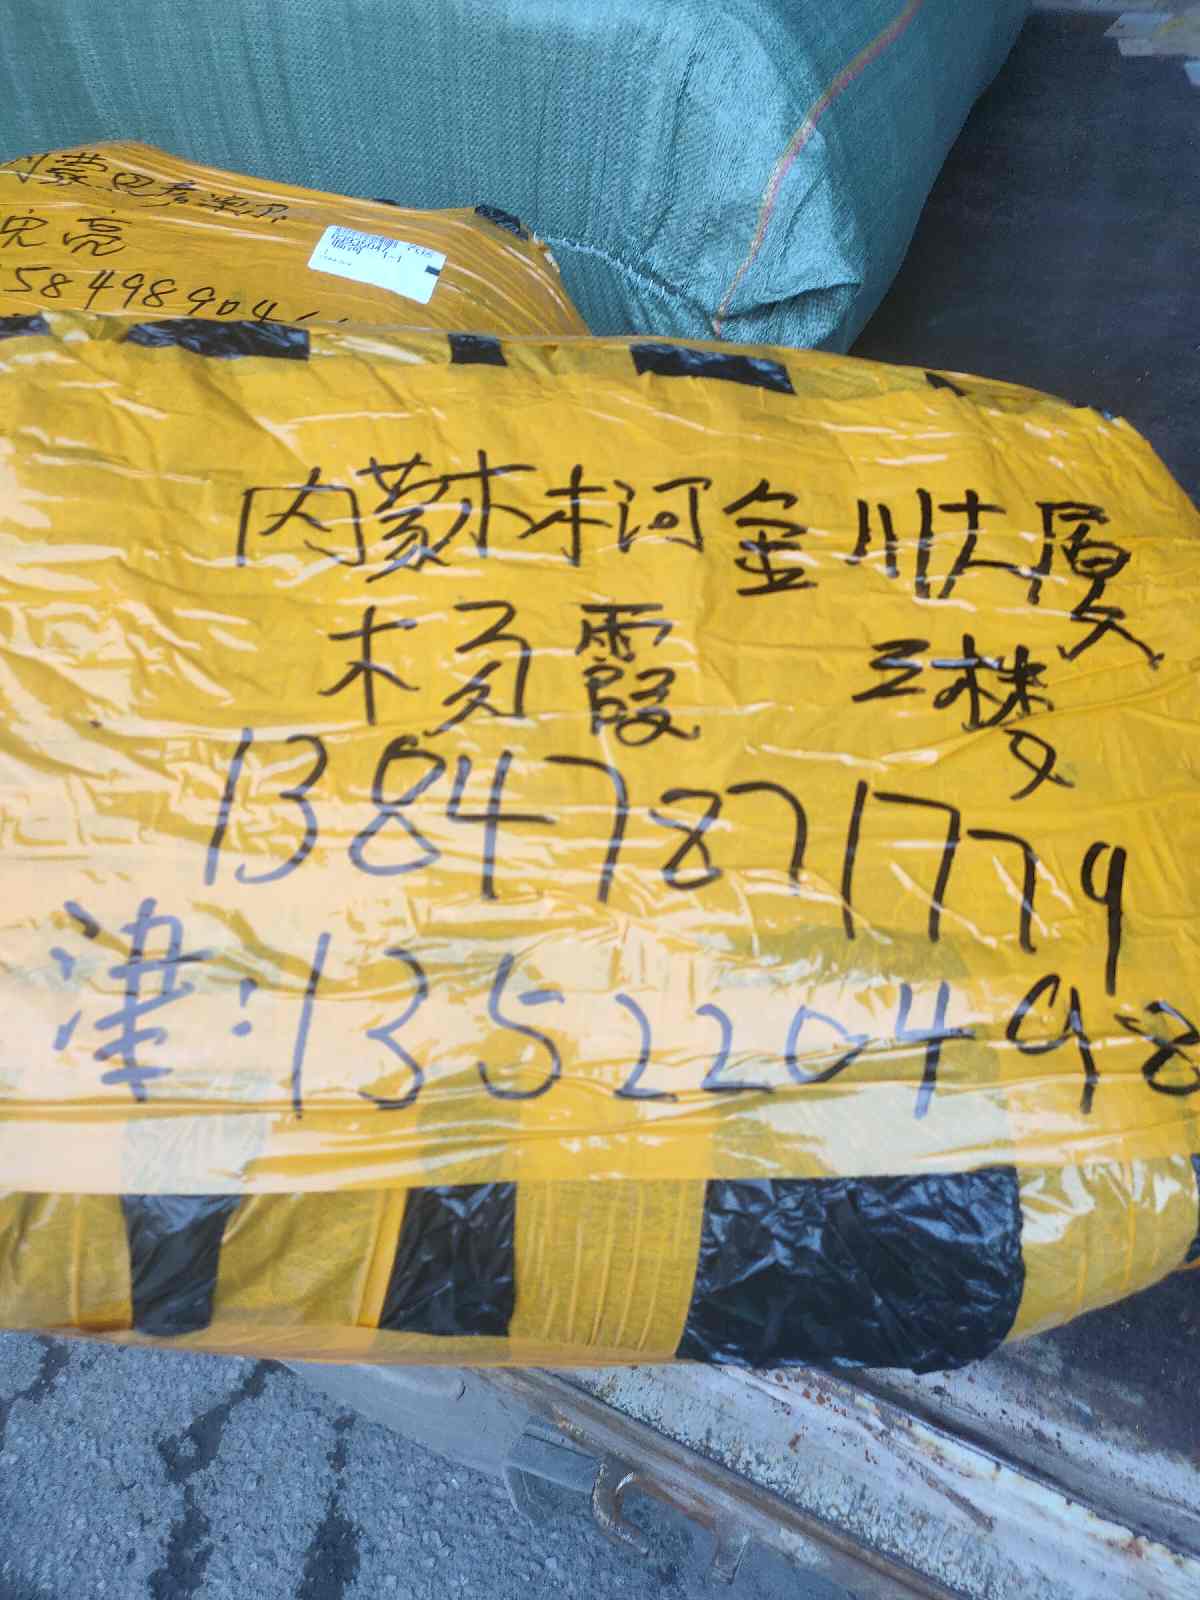 内蒙巴彦淖尔
亮
158498904
临河
内蒙林河金川大厦
杨霞
三楼
13847871779
津:135220498